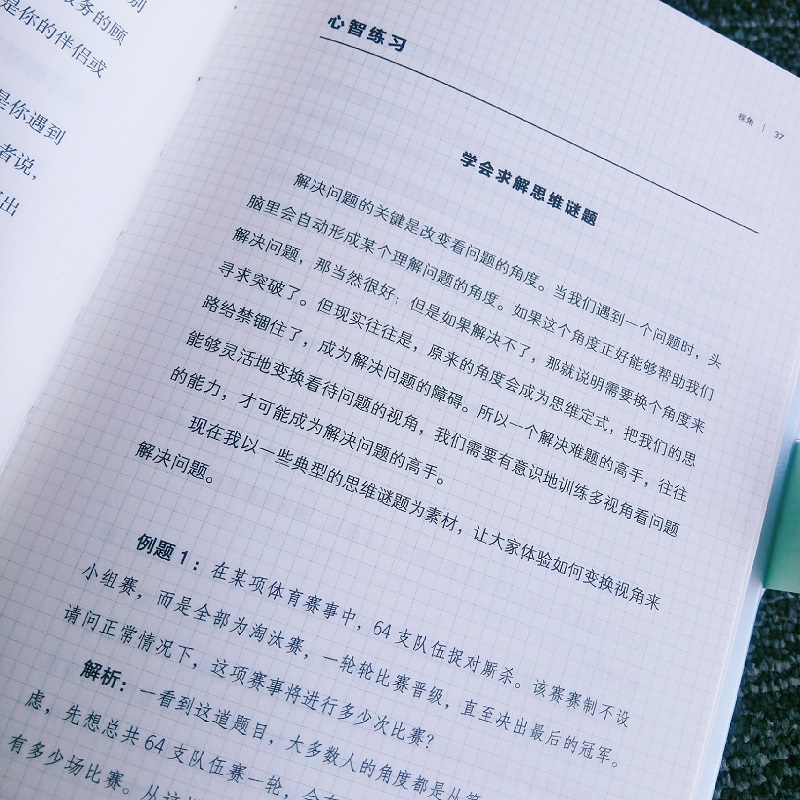 别
务的顾
是你的伴侣或
是你遇到
者说，
出
心智练习
视角 | 37
学会求解思维谜题
解决问题的关键是改变看问题的角度。当我们遇到一个问题时，头
脑里会自动形成某个理解问题的角度。如果这个角度正好能够帮助我们
解决问题，那当然很好；但是如果解决不了，那就说明需要换个角度来
寻求突破了。但现实往往是，原来的角度会成为思维定式，把我们的思
路给禁锢住了，成为解决问题的障碍。所以一个解决难题的高手，往往
能够灵活地变换看待问题的视角，我们需要有意识地训练多视角看问题
的能力，才可能成为解决问题的高手。
现在我以一些典型的思维谜题为素材，让大家体验如何变换视角来
解决问题。
例题 1：在某项体育赛事中，64 支队伍捉对厮杀。该赛赛制不设
小组赛，而是全部为淘汰赛，一轮轮比赛晋级，直至决出最后的冠军。
请问正常情况下，这项赛事将进行多少次比赛？
解析：一看到这道题目，大多数人的角度都是从第
虑，先想总共 64 支队伍赛一轮，会有
有多少场比赛。从这